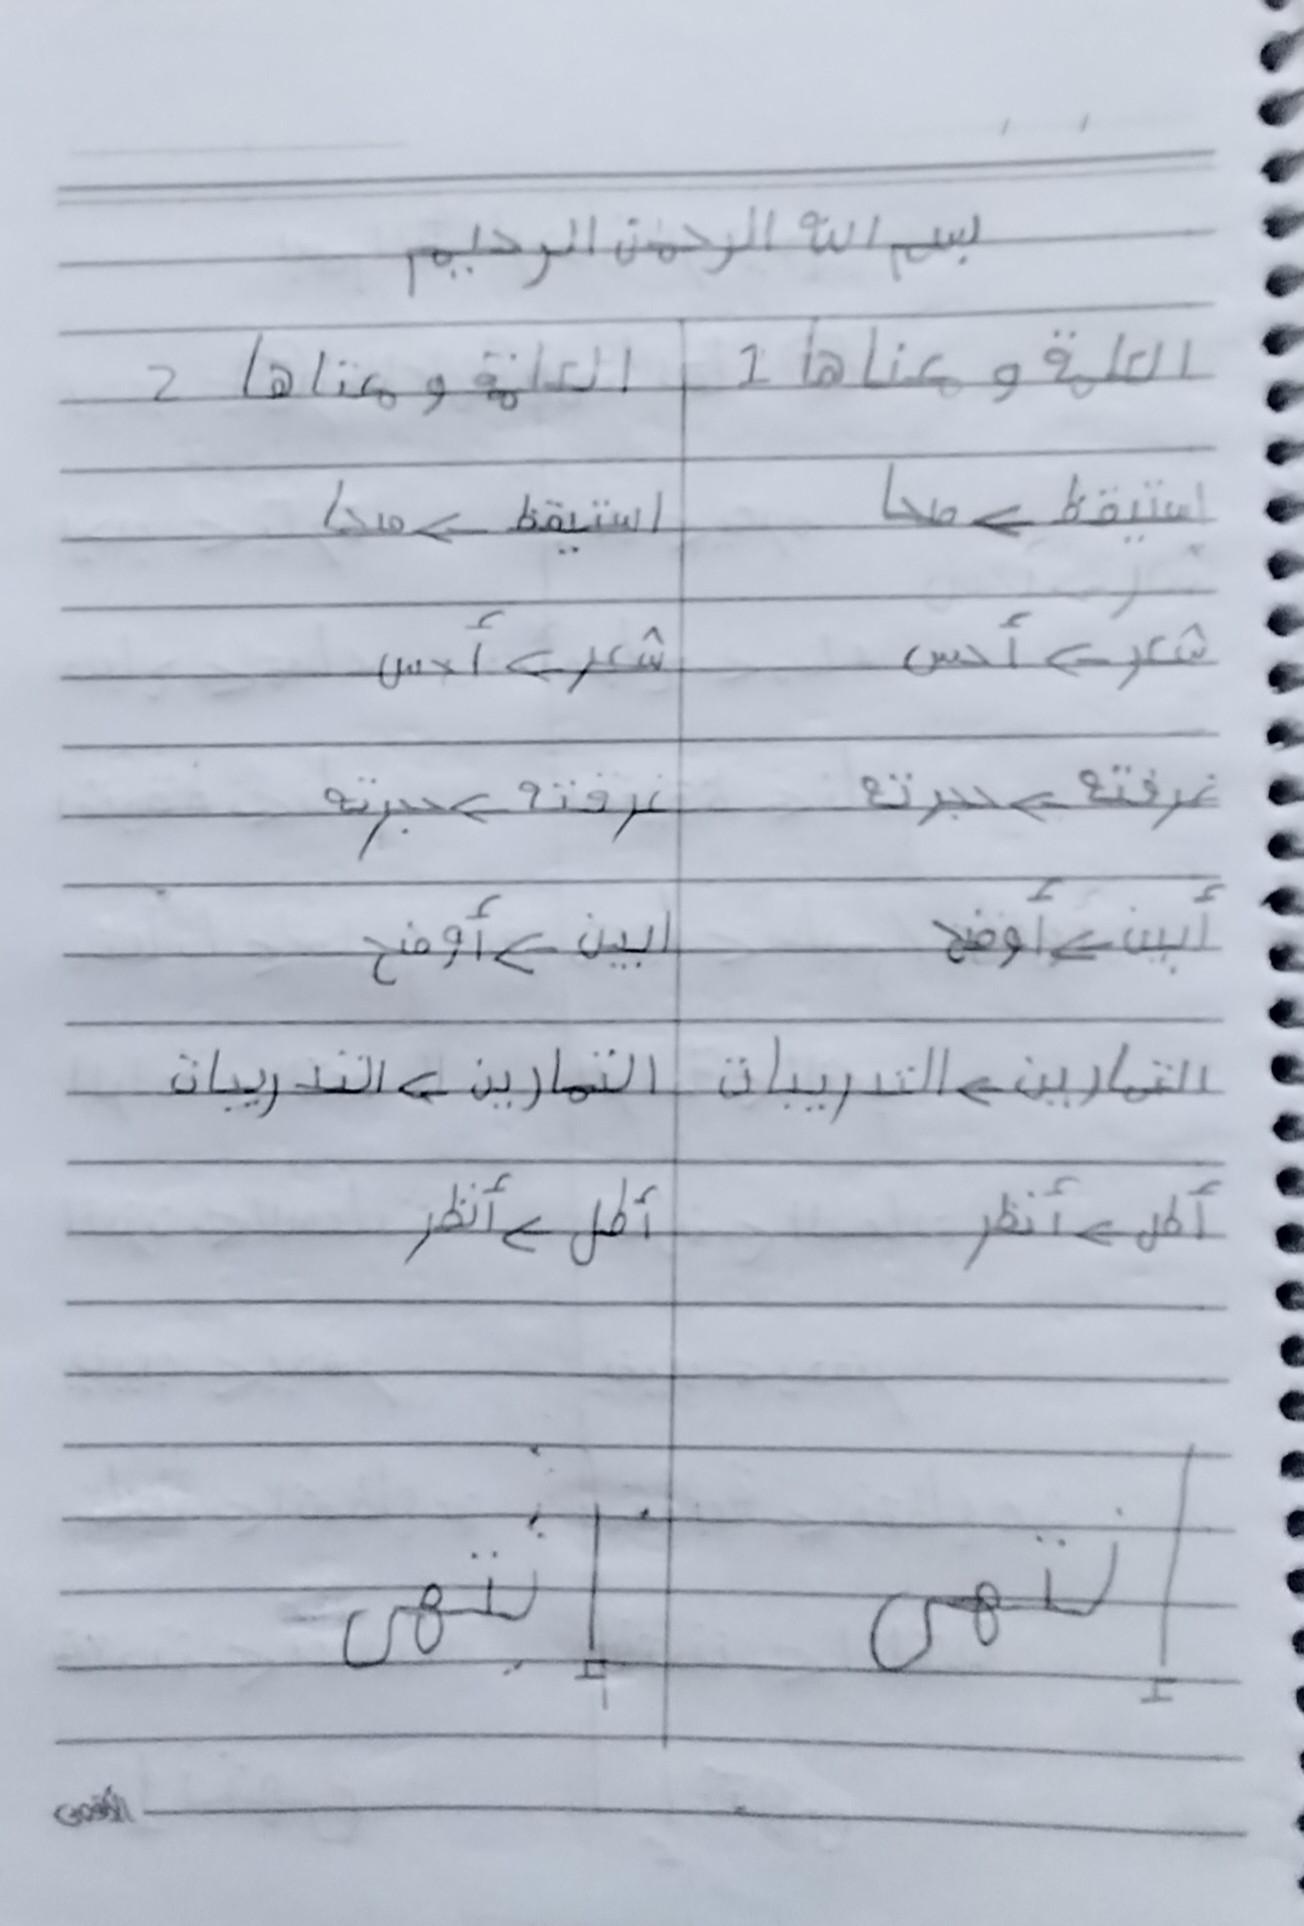 بسم الله الرحمن الرحيم
الكلمة و معناها 1
استيقظ > صحا
شعر > أحس
غرفته > حجرته
أبين > أوضح
التمارين > التدريبات
أطل > أنظر
انتهى
الكلمة و معناها 2
استيقظ > صحا
شعر > أحس
غرفته > حجرته
ابين > أوضح
التمارين > التدريبات
أطل > أنظر
انتهى